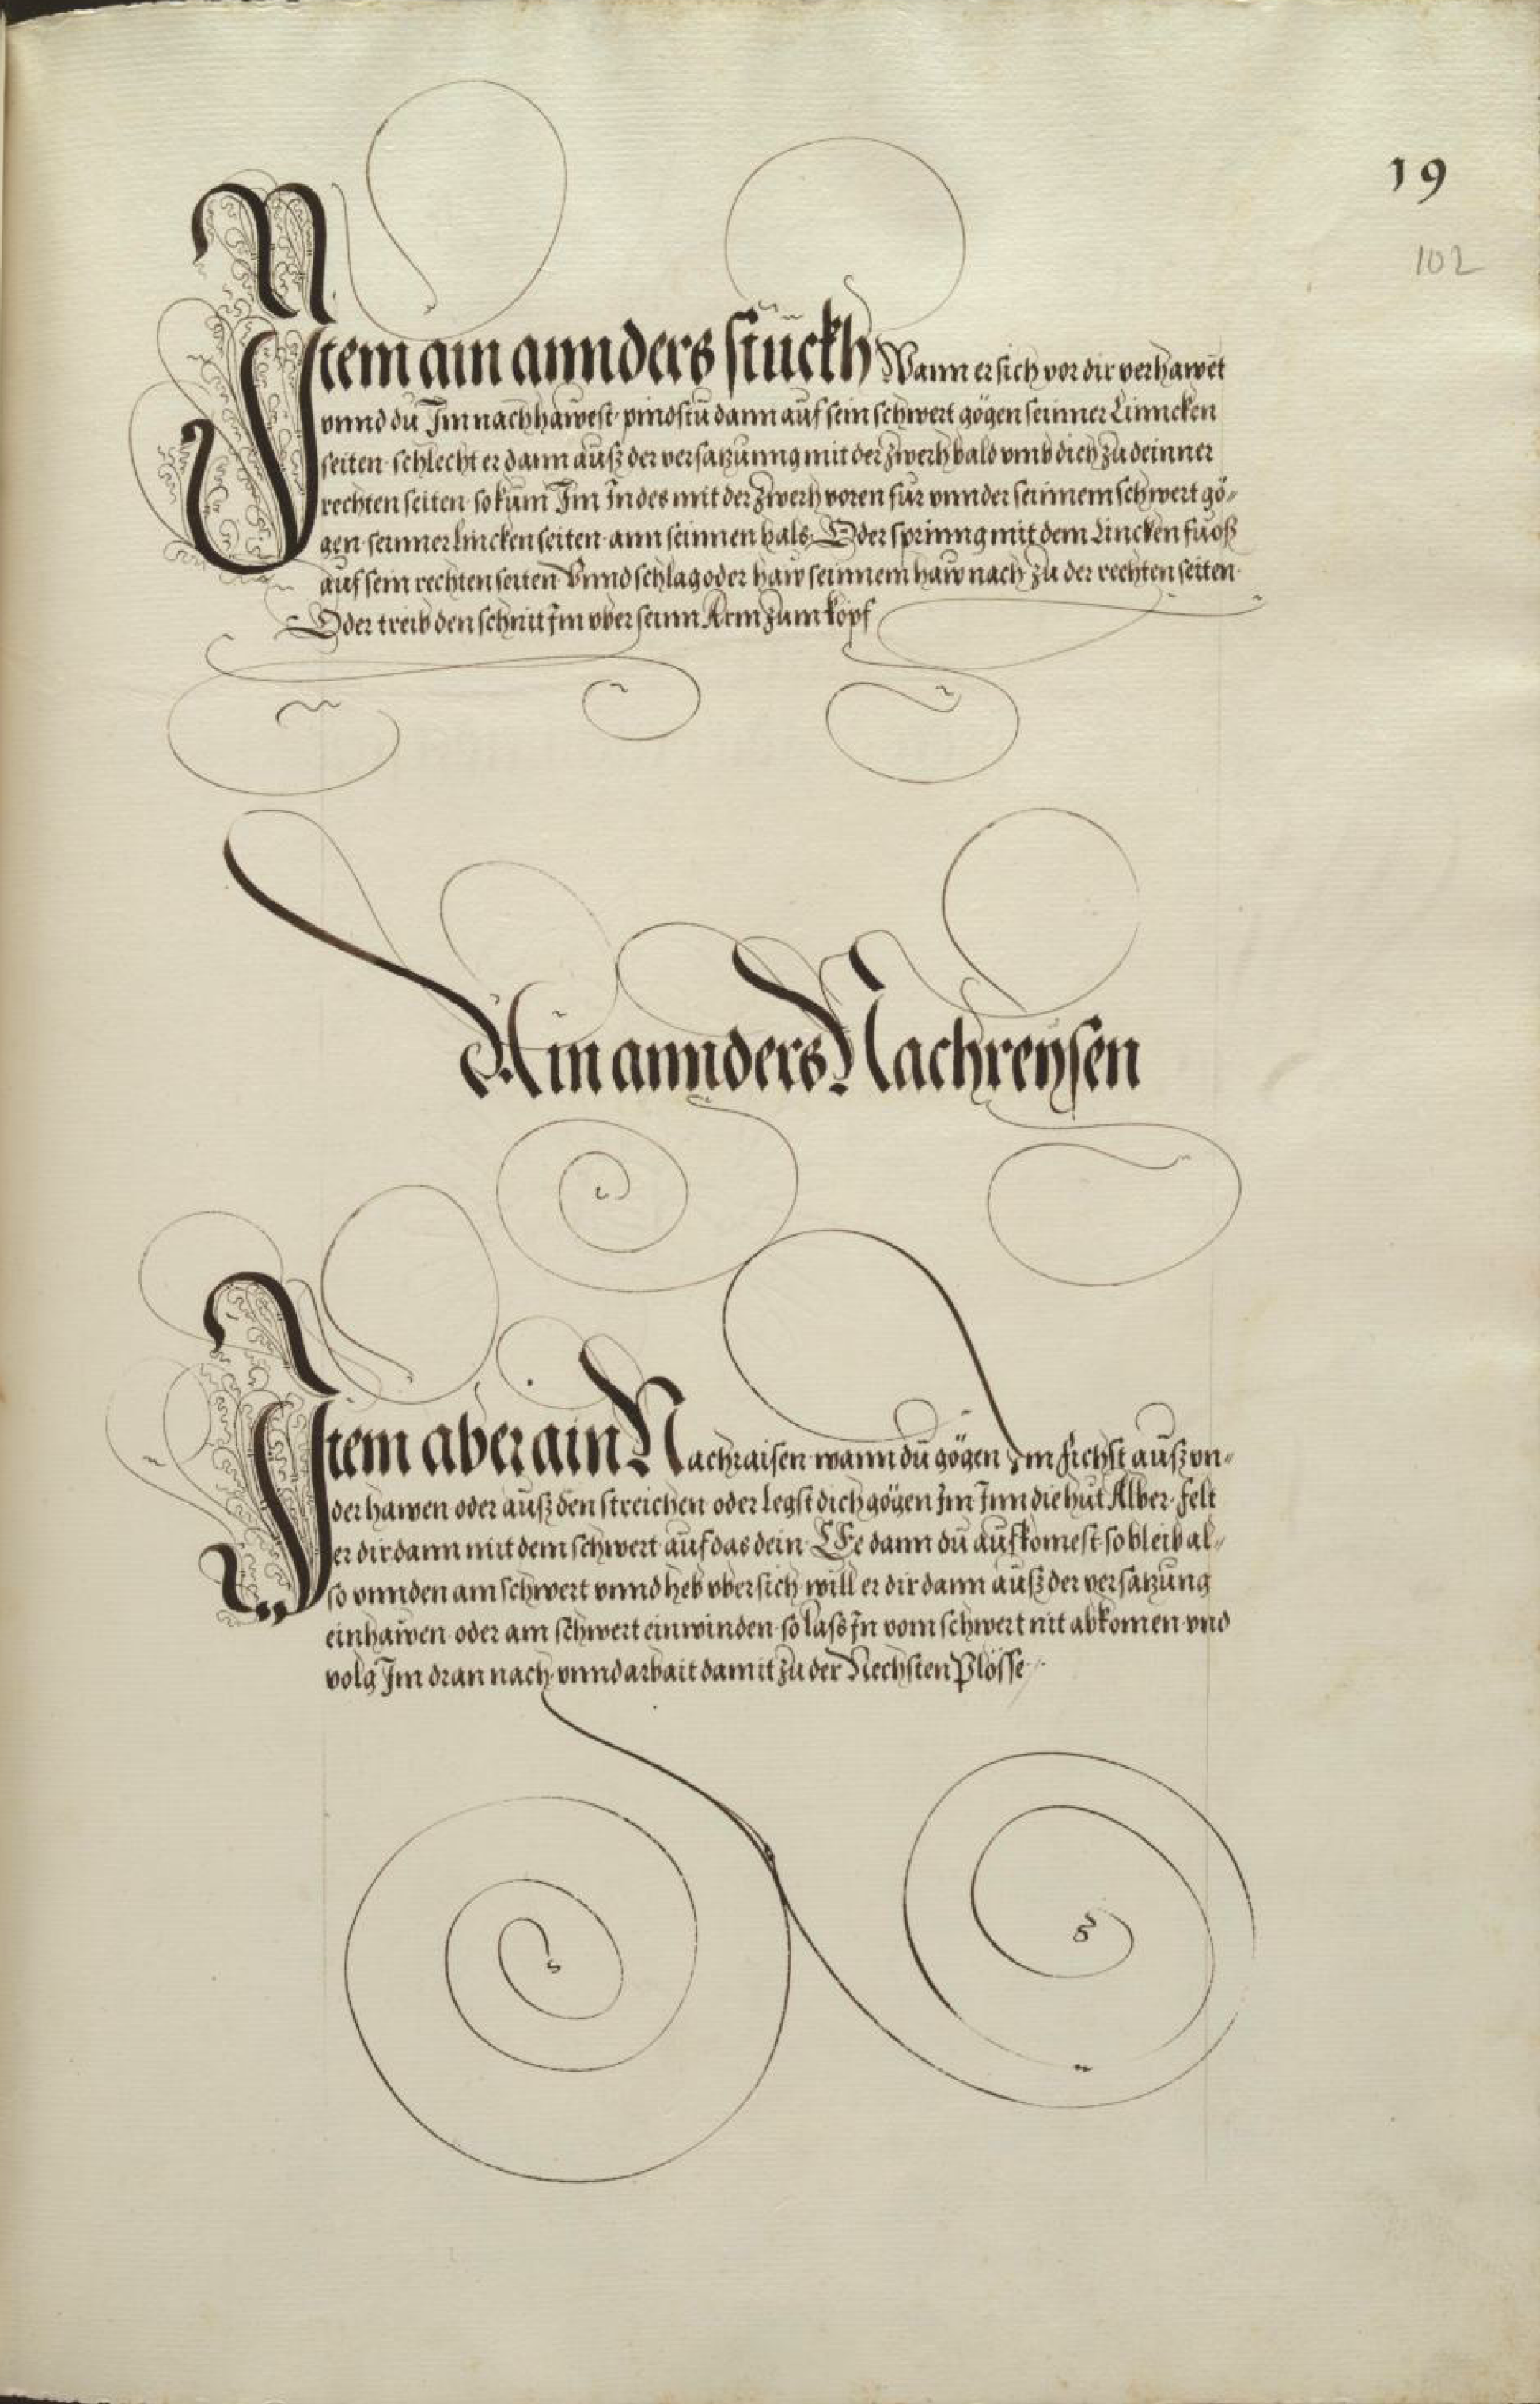 19
102
Item ain annders stuckh Wann er sich vor dir verhawet
vnnd du Im nach hawest. pindstu dann auf sein schwert gögen seinner Linncken
seiten. schlecht er dann auß der versatzunng mit der zwerh bald vmb dich zu deinner
rechten seiten. so kum Im Indes mit der zwerh voren für vnnder seinnem schwert gö„
gen seinner lincken seiten. ann seinnen hals. Oder sprinng mit dem Lincken fuoß
auf sein rechten seiten. Vnnd schlag oder haw seinnem haw nach zu der rechten seiten.
Oder treib den schnit Im vber seinn Arm zum kopf
Ain annders Nachreysen
Item aber ain Nachraisen. wann du gögen Im fichst auß vn„
der hawen oder auß den streichen. oder legst dich gögen Im Inn die hut Alber. felt
er dir dann mit dem schwert auf das dein. Ee dann du auf komest. so bleib al„
so vnnden am schwert vnnd heb vbersich. will er dir dann auß der versatzung
einhawen. oder am schwert einwinden. so lass In vom schwert nit abkomen. vnd
volg Im dran nach. vnnd arbait damit zu der Nechsten Plösse.